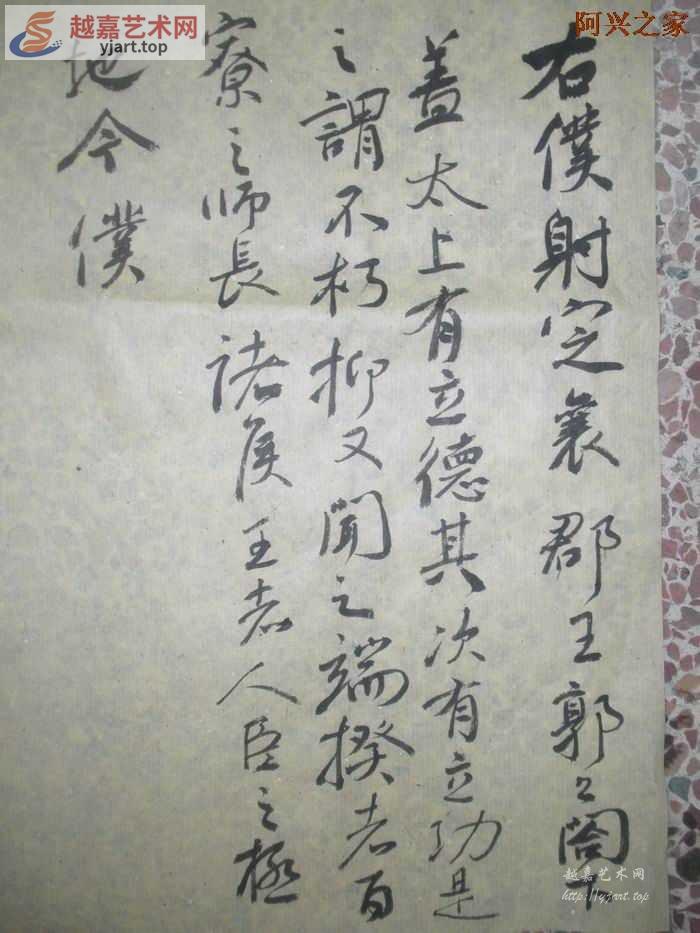 越嘉艺术网
yjart.top
阿兴之家
右僕射定襄郡王郭公閤下
蓋太上有立德其次有立功是
之謂不朽抑又聞之端揆者百
寮之師長諸侯王者人臣之極
地今僕
越嘉艺术网
http://yjart.top